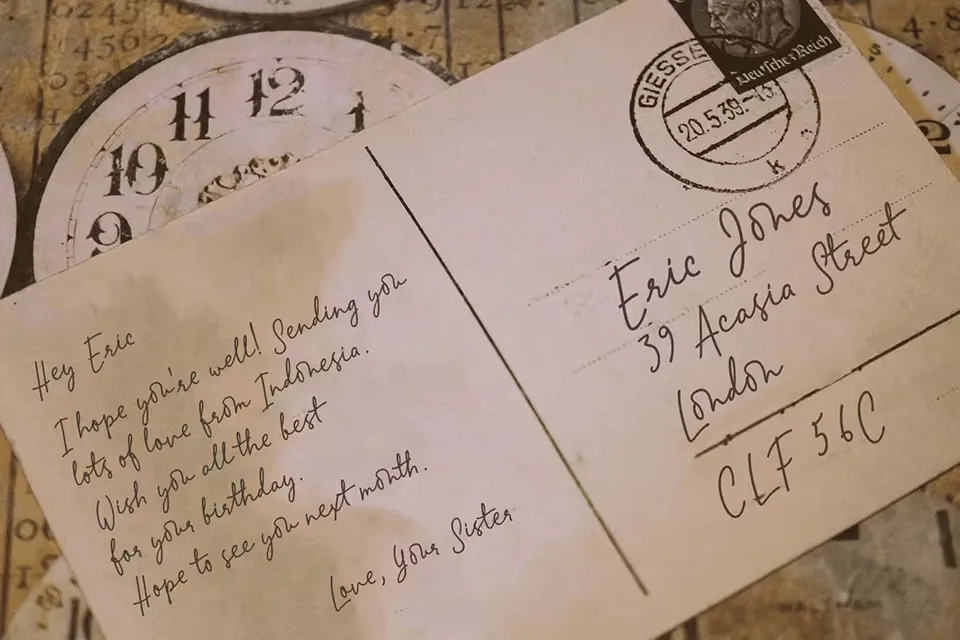 12
11
1
10
9
Hey Eric
I hope you're well! Sending you
lots of love from Indonesia.
Wish you all the best
for your birthday.
Hope to see you next month.
Love, Your Sister
Deutsches Reich
GIESSE
20.5.39.-13
k
Eric Jones
39 Acasia Street
London
CLF 56C
2